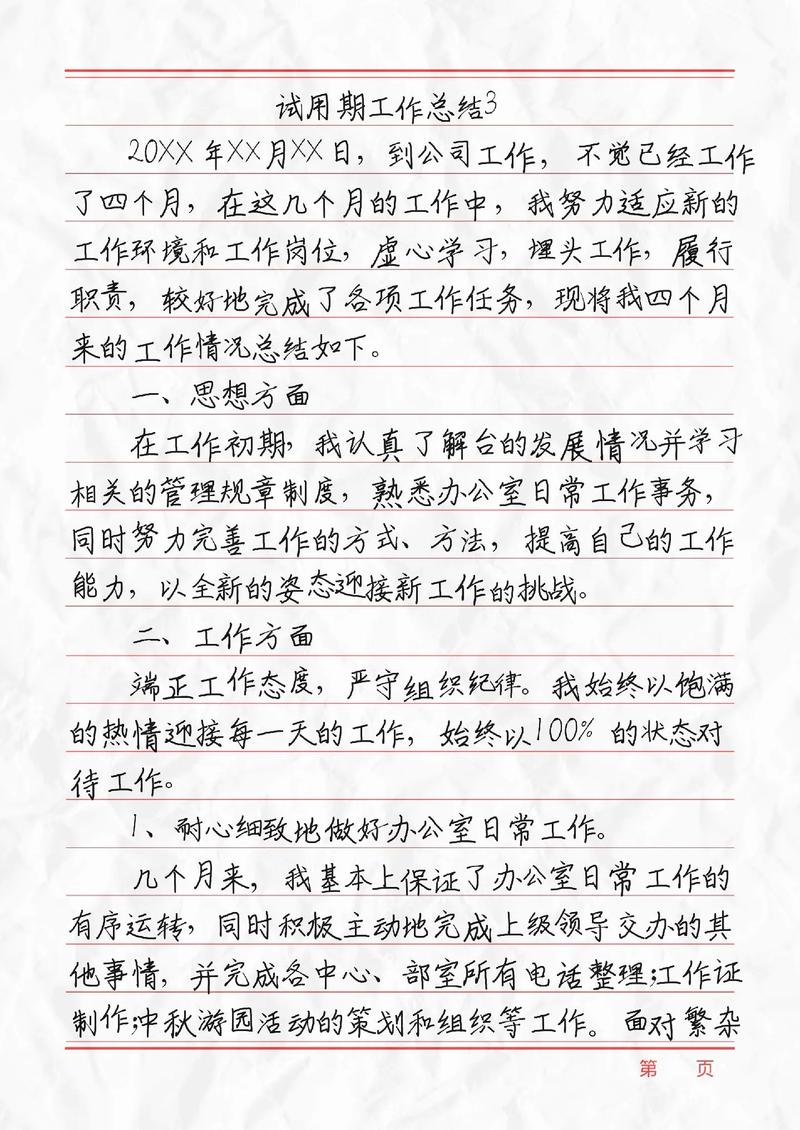 试用期工作总结3
20XX年XX月XX日，到公司工作，不觉已经工作
了四个月，在这几个月的工作中，我努力适应新的
工作环境和工作岗位，虚心学习，埋头工作，履行
职责，较好地完成了各项工作任务，现将我四个月
来的工作情况总结如下。
一、思想方面
在工作初期，我认真了解台的发展情况并学习
相关的管理规章制度，熟悉办公室日常工作事务，
同时努力完善工作的方式、方法，提高自己的工作
能力，以全新的姿态迎接新工作的挑战。
二、工作方面
端正工作态度，严守组织纪律。我始终以饱满
的热情迎接每一天的工作，始终以100%的状态对
待工作。
1、耐心细致地做好办公室日常工作。
几个月来，我基本上保证了办公室日常工作的
有序运转，同时积极主动地完成上级领导交办的其
他事情，并完成各中心、部室所有电话整理;工作证
制作;中秋游园活动的策划和组织等工作。面对繁杂
第 页